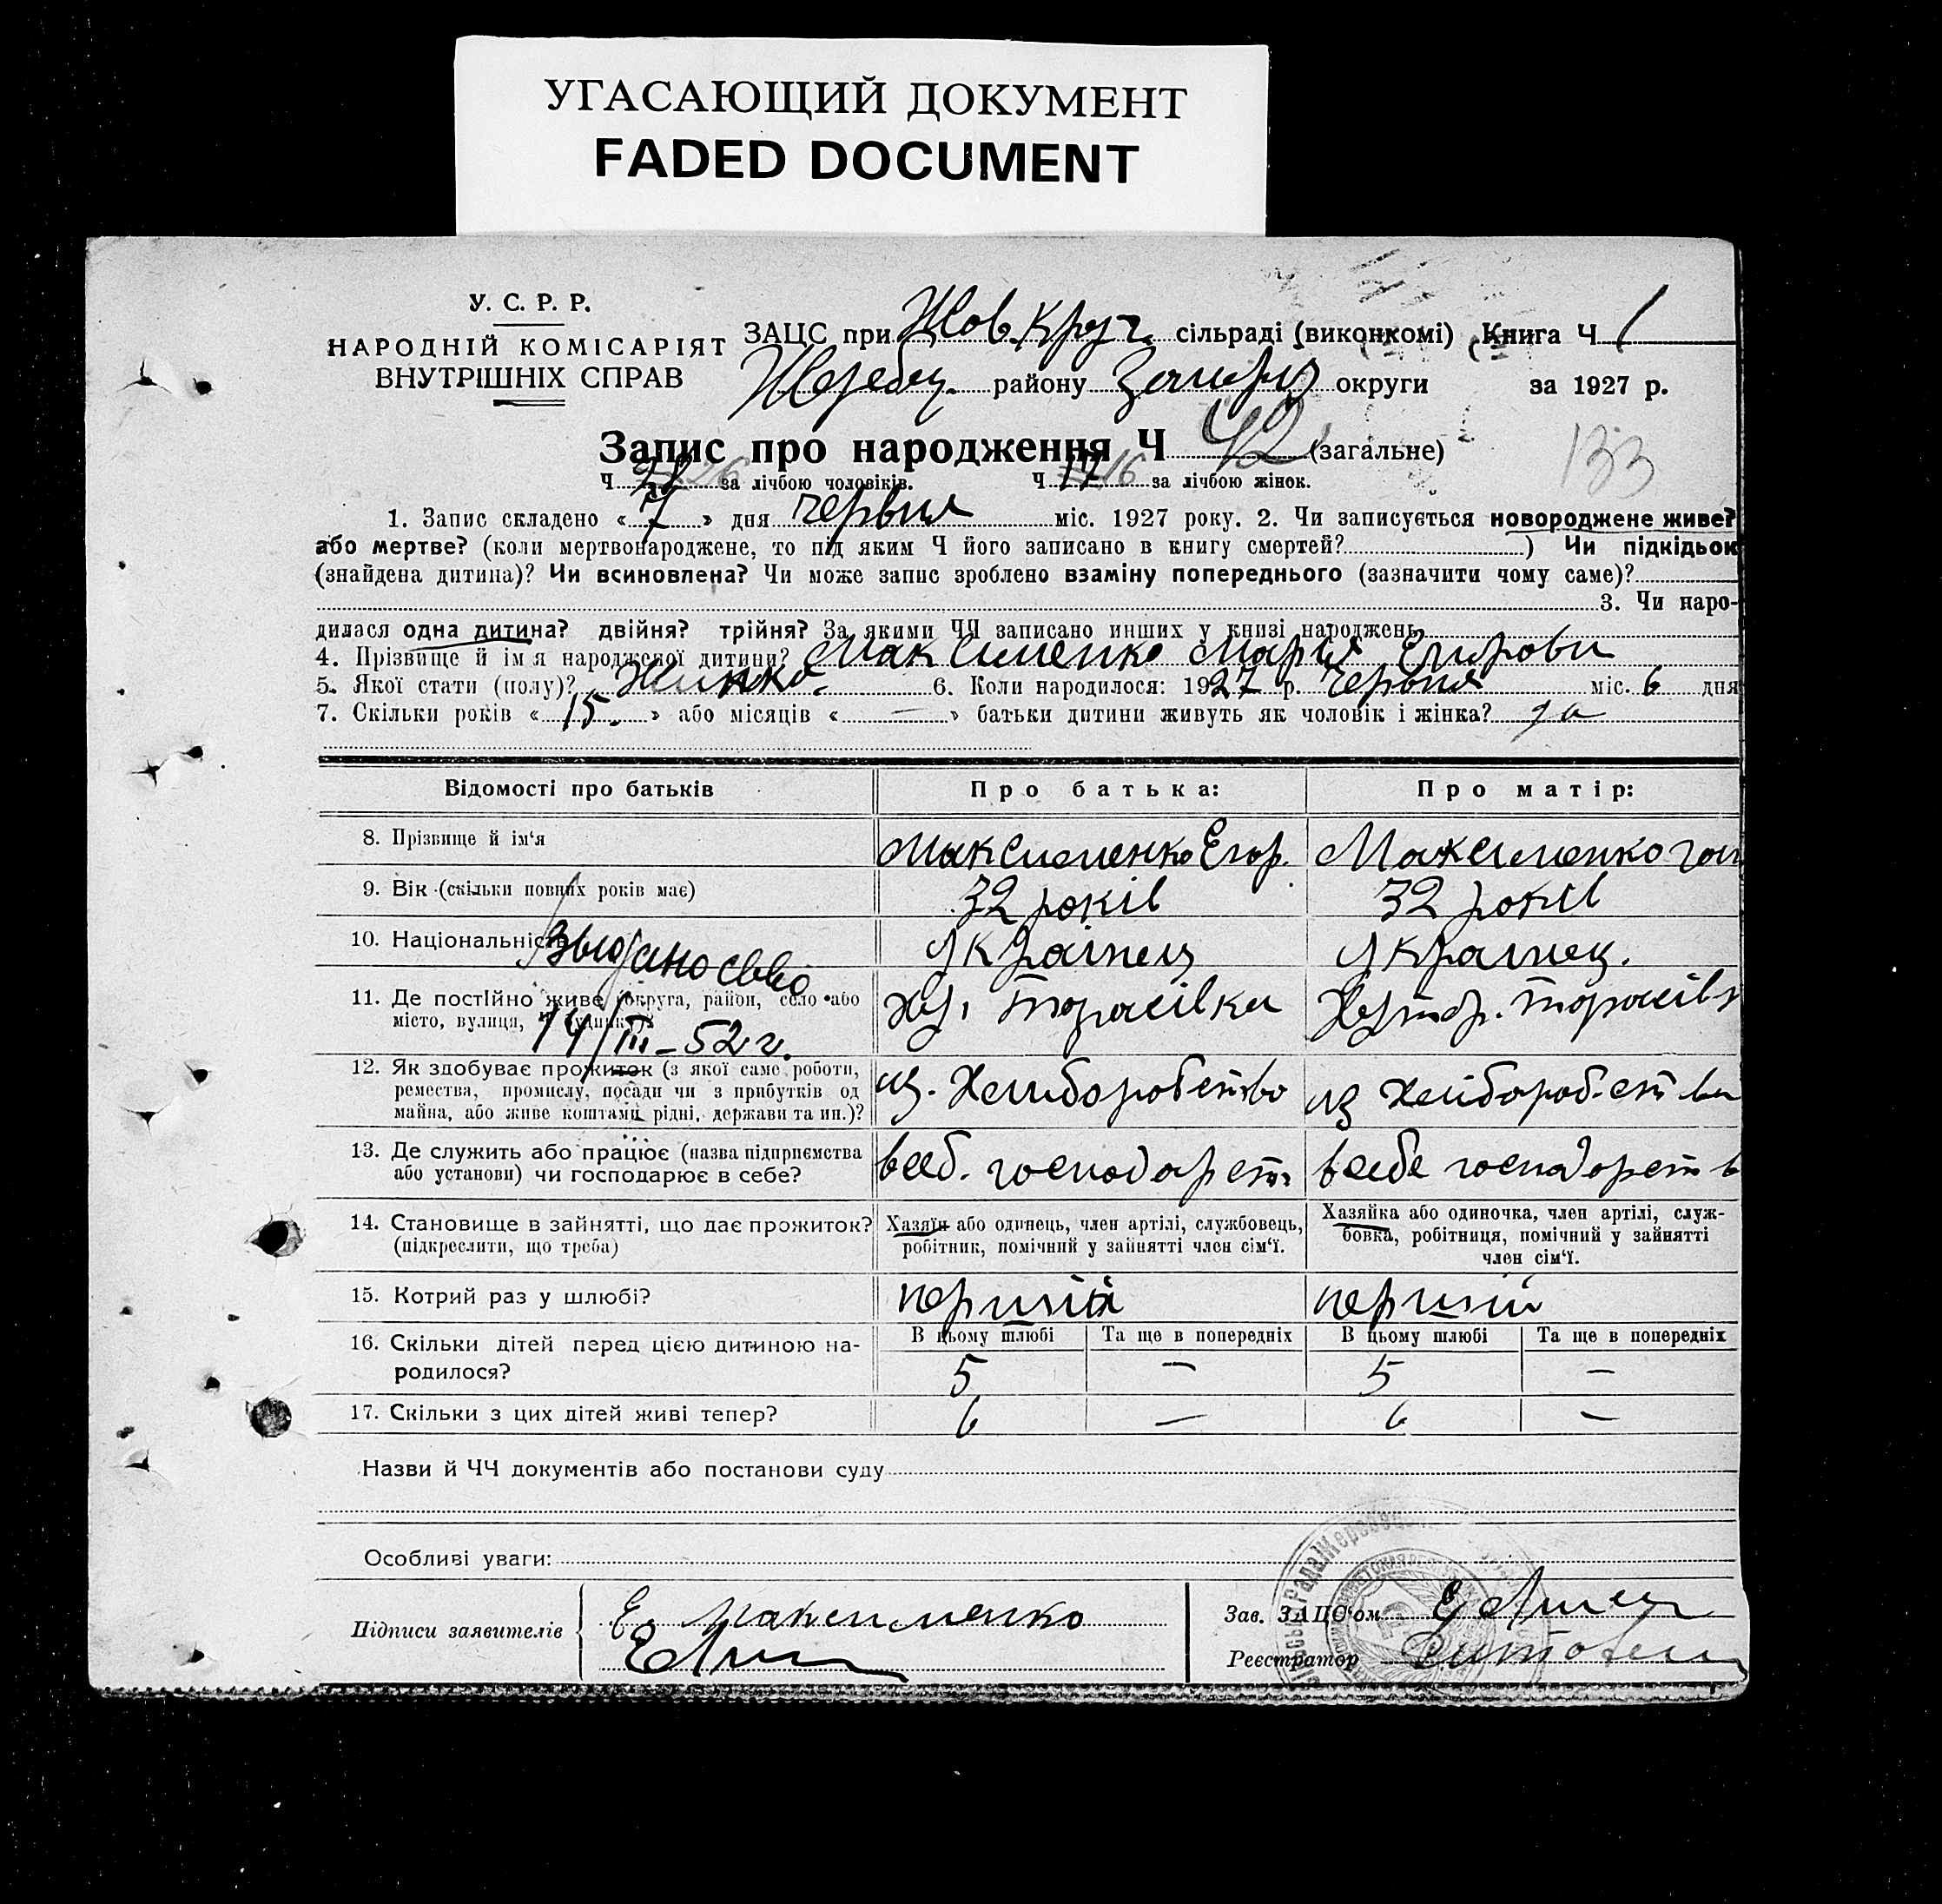 УГАСАЮЩИЙ ДОКУМЕНТ
FADED DOCUMENT
У. С. Р. Р.
НАРОДНІЙ КОМІСАРІЯТ
ВНУТРІШНІХ СПРАВ
ЗАЦС при Жов. Круг. сільраді (виконкомі) Книга Ч 1
Жеребц. району Запоріз округи за 1927 р.
Запис про народження Ч 42 (загальне)
133
Ч 26 за лічбою чоловіків. Ч 17 16 за лічбою жінок.
1. Запис складено « 7 » дня червня міс. 1927 року. 2. Чи записується новороджене живе?
або мертве? (коли мертвонароджене, то під яким Ч його записано в книгу смертей? ) Чи підкідьок
(знайдена дитина)? Чи всиновлена? Чи може запис зроблено взаміну попереднього (зазначити чому саме)?
3. Чи наро-
дилася одна дитина? двійня? трійня? За якими ЧЧ записано инших у книзі народжень
4. Прізвище й імя народженої дитини? Максименко Марія Егорови
5. Якої стати (полу)? Жинка. 6. Коли народилося: 1927 р. Червня міс. 6 дня
7. Скільки років « 15. » або місяців « — » батьки дитини живуть як чоловік і жінка? да
Відомості про батьків Про батька: Про матір:
8. Прізвище й ім'я Максименко Егор. Максименко
9. Вік (скільки повних років має) 32 років 32 років
10. Національність Украінець Украінец.
Выдано свво
11. Де постійно живе (округа, район, село або
місто, вулиця, Ч будинку)? хут. Тарасівка Хутор. Тарасівк
14/III–52 г.
12. Як здобуває прожиток (з якої саме роботи,
ремества, промислу, посади чи з прибутків од
майна, або живе коштами рідні, держави та ин.)? из. Хлиборобство из хлібороб.ства
13. Де служить або працює (назва підприємства
або установи) чи господарює в себе? всеб. господарств всебе господарств
14. Становище в зайнятті, що дає прожиток?
(підкреслити, що треба)
Хазяїн або одинець, член артілі, службовець,
робітник, помічний у зайнятті член сім'ї.
Хазяйка або одиночка, член артілі, служ-
бовка, робітниця, помічний у зайнятті
член сім'ї.
15. Котрий раз у шлюбі? перший перший
16. Скільки дітей перед цією дитиною на-
родилося?
В цьому шлюбі Та ще в попередніх В цьому шлюбі Та ще в попередніх
5 — 5 —
17. Скільки з цих дітей живі тепер? 6 — 6 —
Назви й ЧЧ документів або постанови суду
Особливі уваги:
Підписи заявителів Е. Максименко
Зав. ЗАЦС'ом
Реєстратор